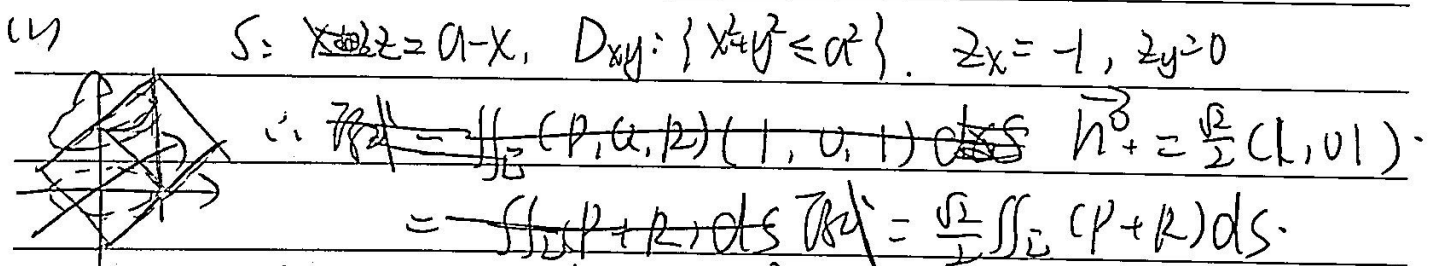 (2) S: z=a-x, Dxy: {x²+y²≤a²}. zx=-1, zy=0
∴ 原式 = ∬Σ (P,Q,R)(1,0,1) dS n⁰₊ = √2/2 (1,0,1).
= ∬Σ (P+R) dS 原式 = √2/2 ∬Σ (P+R)dS.